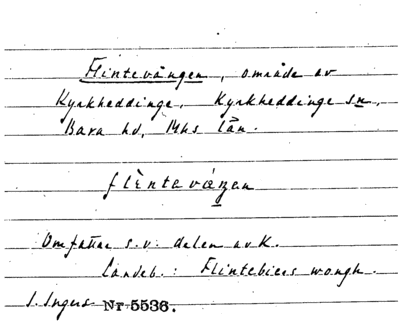 Flintevången, område av
Kyrkheddinge, Kyrkheddinge sn,
Bara hd, Mhs län.
flìntevåŋen
Omfattar s.v. delen av K.
Landeb.: Flintebiers wongh.
I. Ingers Nr 5536.